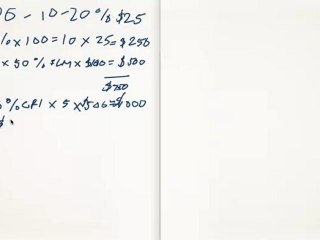 - 10-20% $25
% x 100 = 10 x 25 = $250
x 50% x $100 = $500
$750
% CRI x 5 x $500 = $1000
$